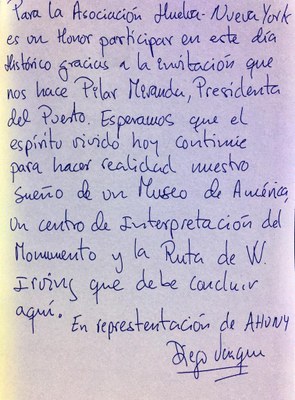 Para la Asociación Huelva-Nueva York
es un Honor participar en este día
Histórico gracias a la invitación que
nos hace Pilar Miranda, Presidenta
del Puerto. Esperamos que el
espíritu vivido hoy continúe
para hacer realidad nuestro
sueño de un Museo de América,
un centro de Interpretación del
Monumento y la Ruta de W.
Irving que debe concluir
aquí.
En representación de AHUNY
Diego